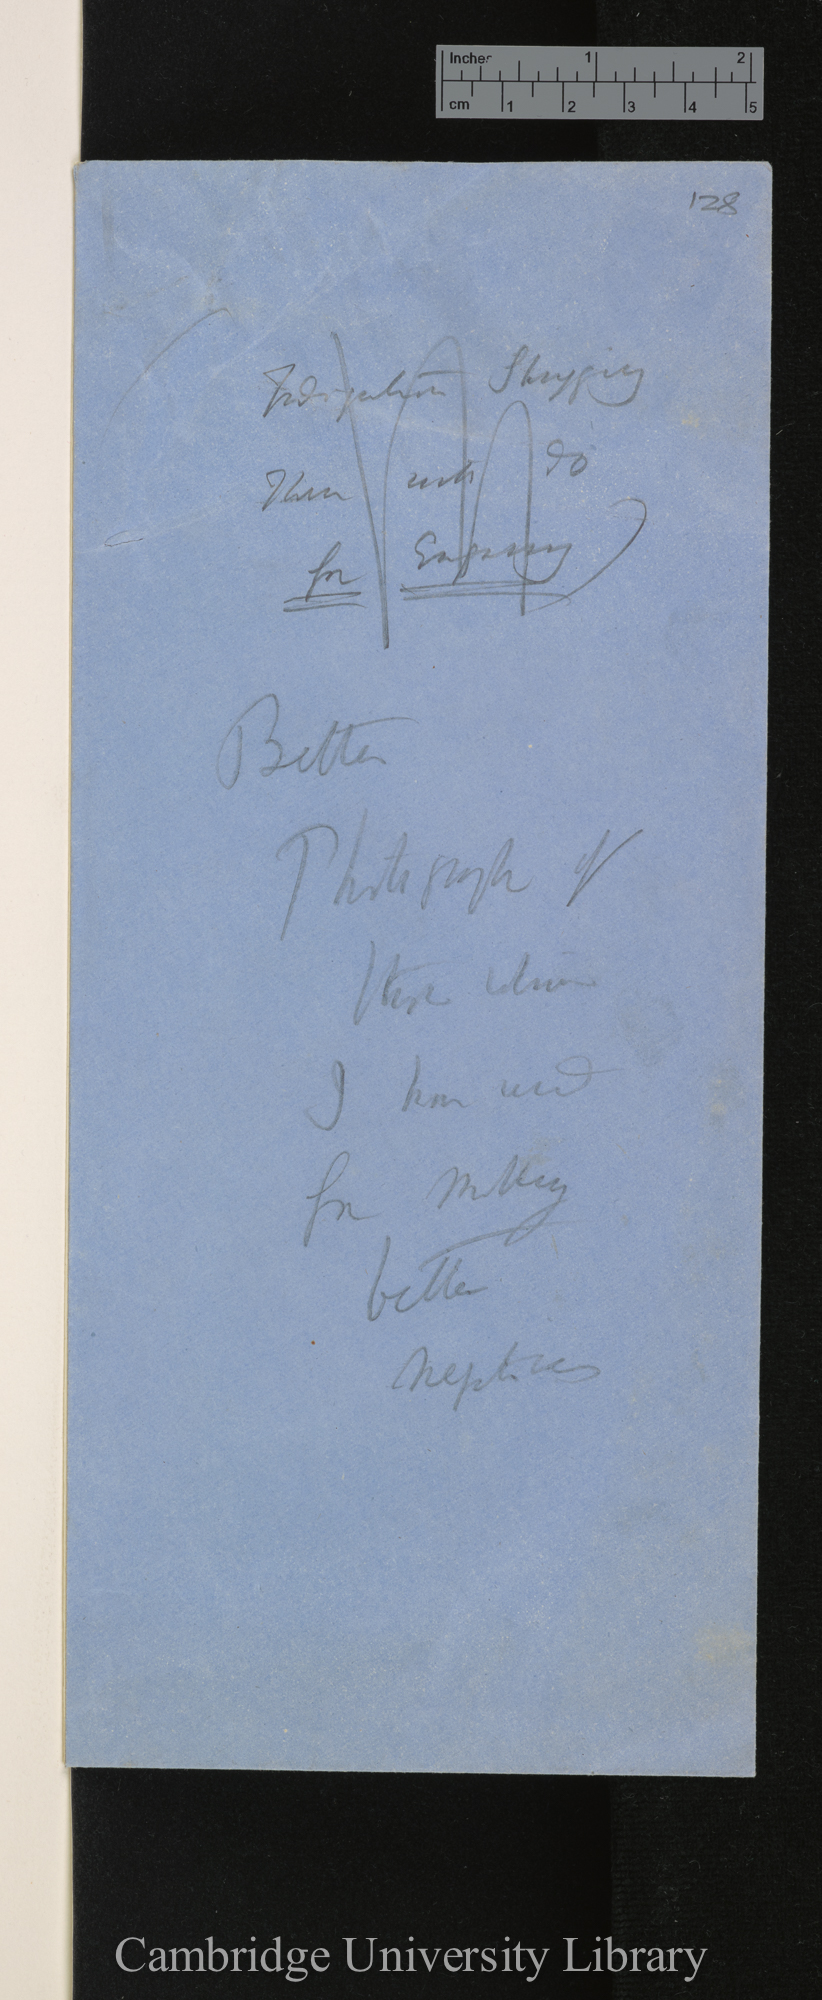 Inches 1 2
cm 1 2 3 4 5
128
Indignation Shrugging
These will do
for Engraving
Better
Photograph of
those which
I have used
for making
better
negatives
Cambridge University Library